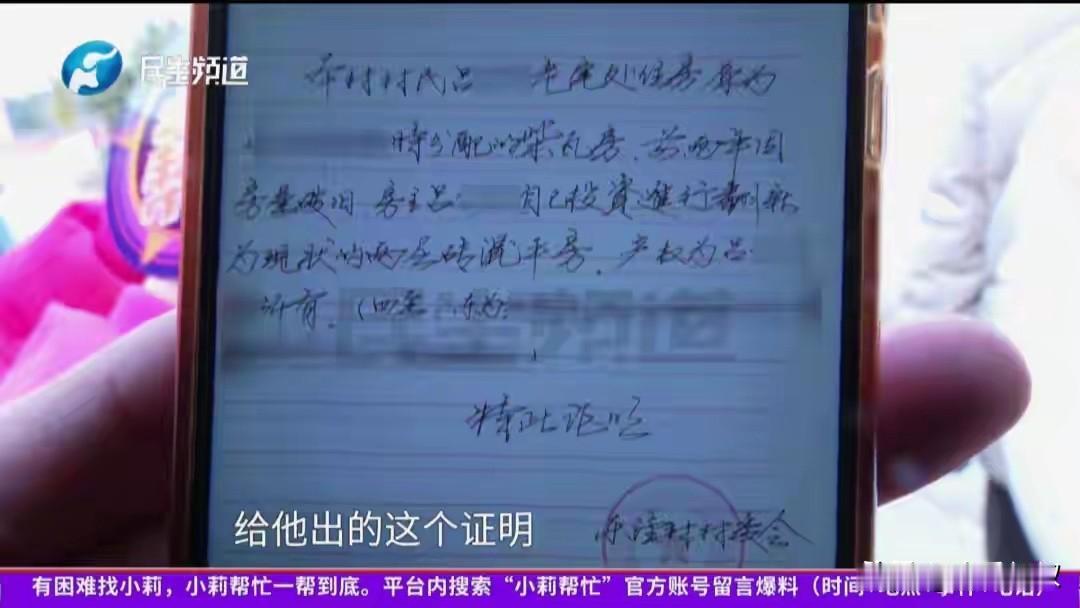 民生频道
本村村民吕 老宅处住房原为
时分配的柴瓦房，前两年因
房屋破旧 房主吕 自己投资进行翻新
为现状的两层砖混平房，产权为吕
所有，（四至 东为：
民生频道
特此证明
村村委会
给他出的这个证明
有困难找小莉，小莉帮忙一帮到底。平台内搜索“小莉帮忙”官方账号留言爆料（时间